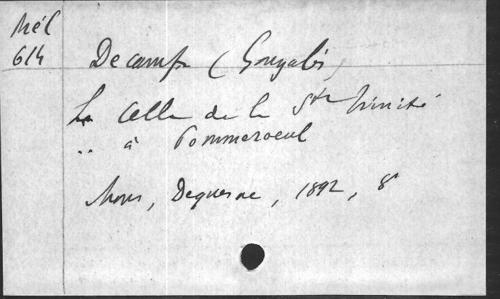 Mél
614
Decamps (Gonzalès)
La Celle de la Ste Trinité
.. à Pommeroeul
Mons, Dequesne, 1892, 8°